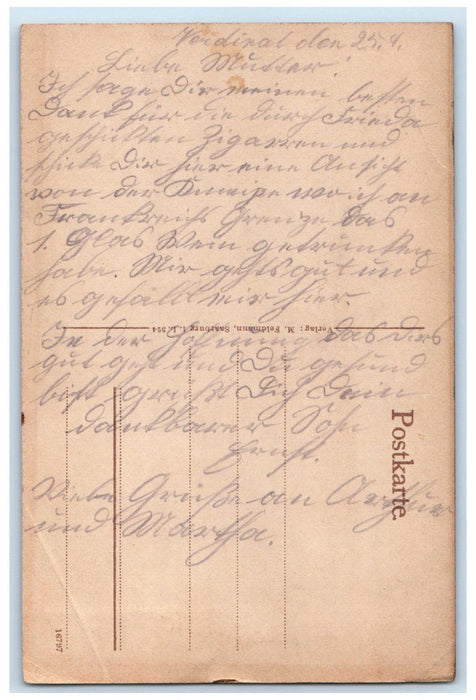 Verdinal den 25.4.
Liebe Mutter!
Ich sage Dir meinen besten
Dank für die durch Frieda
geschikten Zigarren und
schicke Dir hier eine Ansicht
von der Kneipe wo ich an
Frankreichs Grenze das
1. Glas Wein getrunken
habe. Mir gehts gut und
es gefällt mir hier.
In der Hoffnung das dirs
gut get und Du gesund
bist grüßt Dich Dein
dankbarer Sohn
Ernst.
Viele Grüße an Arthur
und Martha.
Verlag: M. Feldmann, Saarburg i. L. 554
Postkarte.
16797